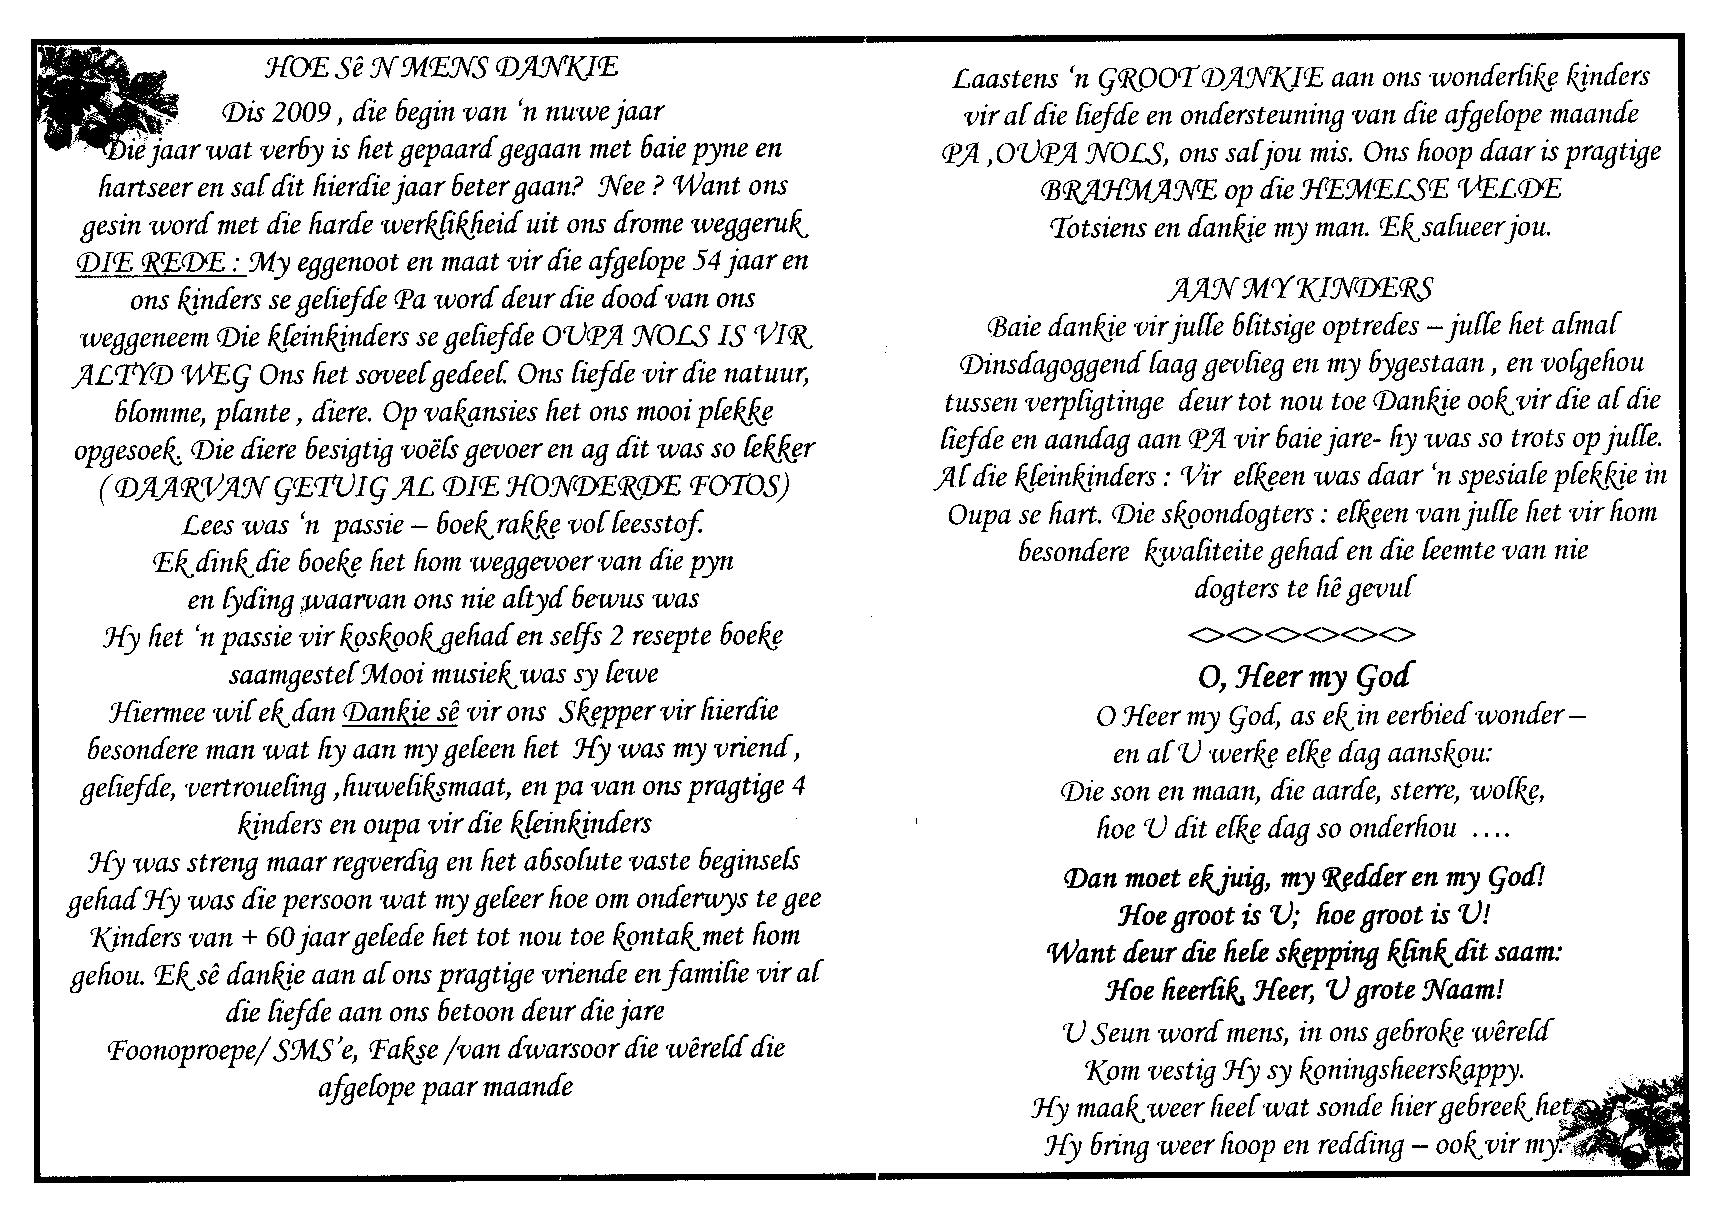 HOE Sê N MENS DANKIE
Dis 2009 , die begin van ‘n nuwe jaar
Die jaar wat verby is het gepaard gegaan met baie pyne en
hartseer en sal dit hierdie jaar beter gaan? Nee ? Want ons
gesin word met die harde werklikheid uit ons drome weggeruk
DIE REDE : My eggenoot en maat vir die afgelope 54 jaar en
ons kinders se geliefde Pa word deur die dood van ons
weggeneem Die kleinkinders se geliefde OUPA NOLS IS VIR
ALTYD WEG Ons het soveel gedeel. Ons liefde vir die natuur,
blomme, plante , diere. Op vakansies het ons mooi plekke
opgesoek. Die diere besigtig voëls gevoer en ag dit was so lekker
( DAARVAN GETUIG AL DIE HONDERDE FOTOS)
Lees was ‘n passie – boek rakke vol leesstof.
Ek dink die boeke het hom weggevoer van die pyn
en lyding ;waarvan ons nie altyd bewus was
Hy het ‘n passie vir koskook gehad en selfs 2 resepte boeke
saamgestel Mooi musiek was sy lewe
Hiermee wil ek dan Dankie sê vir ons Skepper vir hierdie
besondere man wat hy aan my geleen het Hy was my vriend ,
geliefde, vertroueling ,huweliksmaat, en pa van ons pragtige 4
kinders en oupa vir die kleinkinders
Hy was streng maar regverdig en het absolute vaste beginsels
gehad Hy was die persoon wat my geleer hoe om onderwys te gee
Kinders van + 60 jaar gelede het tot nou toe kontak met hom
gehou. Ek sê dankie aan al ons pragtige vriende en familie vir al
die liefde aan ons betoon deur die jare
Foonoproepe/ SMS’e, Fakse /van dwarsoor die wêreld die
afgelope paar maande
Laastens ‘n GROOT DANKIE aan ons wonderlike kinders
vir al die liefde en ondersteuning van die afgelope maande
PA ,OUPA NOLS, ons sal jou mis. Ons hoop daar is pragtige
BRAHMANE op die HEMELSE VELDE
Totsiens en dankie my man. Ek salueer jou.
AAN MY KINDERS
Baie dankie vir julle blitsige optredes – julle het almal
Dinsdagoggend laag gevlieg en my bygestaan , en volgehou
tussen verpligtinge deur tot nou toe Dankie ook vir die al die
liefde en aandag aan PA vir baie jare- hy was so trots op julle.
Al die kleinkinders : Vir elkeen was daar ‘n spesiale plekkie in
Oupa se hart. Die skoondogters : elkeen van julle het vir hom
besondere kwaliteite gehad en die leemte van nie
dogters te hê gevul
<><><><><><>
O, Heer my God
O Heer my God, as ek in eerbied wonder –
en al U werke elke dag aanskou:
Die son en maan, die aarde, sterre, wolke,
hoe U dit elke dag so onderhou ….
Dan moet ek juig, my Redder en my God!
Hoe groot is U; hoe groot is U!
Want deur die hele skepping klink dit saam:
Hoe heerlik, Heer, U grote Naam!
U Seun word mens, in ons gebroke wêreld
Kom vestig Hy sy koningsheerskappy.
Hy maak weer heel wat sonde hier gebreek het,
Hy bring weer hoop en redding – ook vir my.